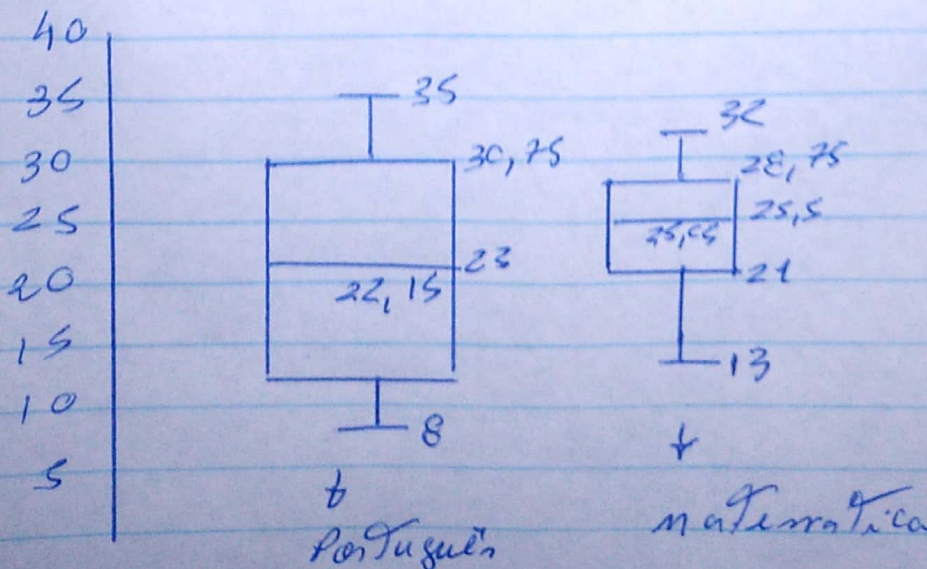 40
35
30
25
20
15
10
5
35
30,75
23
22,15
8
Português
32
28,75
25,5
21
13
matematica